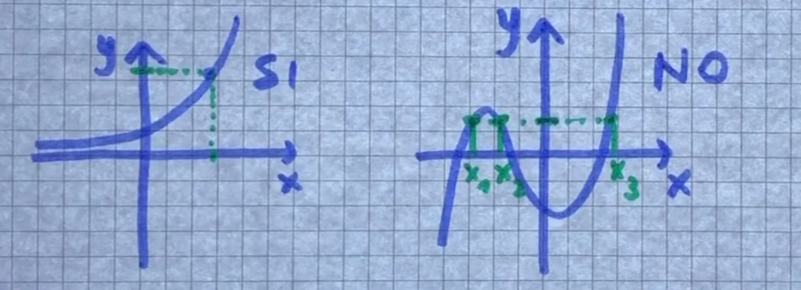 y SI
x
y NO
x₁ x₂ x₃ x